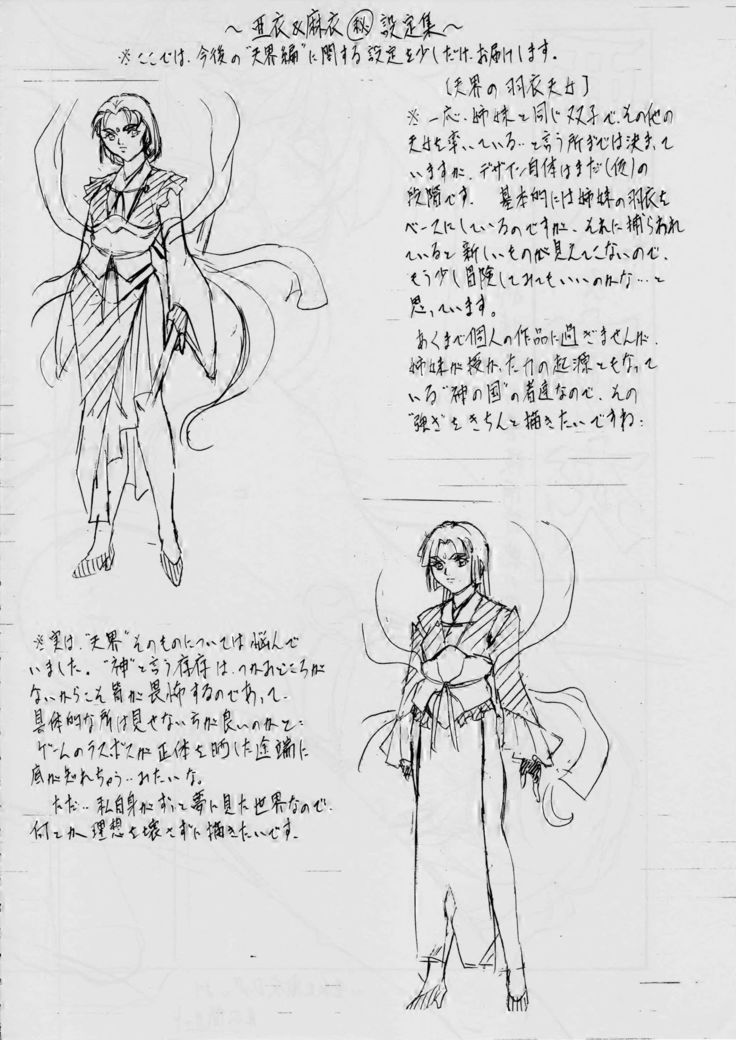 ～亜衣&麻衣㊙設定集～
※ここでは、今後の"天界編"に関する設定を少しだけお届けします。
[天界の羽衣天女]
※一応、姉妹と同じ双子で、その他の
天女を率いている…と言う所までは決まって
いますが、デザイン自体はまだ(仮)の
段階です。 基本的には姉妹の羽衣を
ベースにしているのですが、それに捕らわれ
ていると新しいものが見えてこないので、
もう少し冒険してみてもいいのかな…と
思っています。
あくまで個人の作品に過ぎませんが、
姉妹が授かった力の起源ともなって
いる"神の国"の者達なので、その
"強さ"をきちんと描きたいですね…
※実は、"天界"そのものについては悩んで
いました。"神"と言う存在は、つかみどころが
ないからこそ皆が畏怖するのであって、
具体的な所は見せない方が良いのかと…
ゲームのラスボスが正体を晒した途端に
底が知れちゃう…みたいな。
ただ…私自身がずっと夢に見た世界なので、
何とか理想を壊さずに描きたいです。